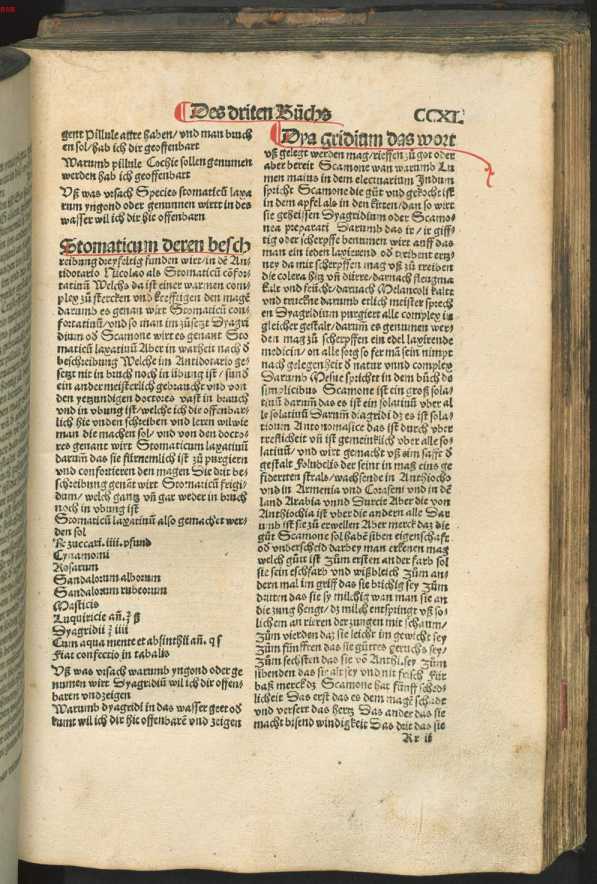 Des driten Bůchs
CCXL
gent Pillule assre haben/vnd man durch
en sol/hab ich dir geoffenbart
Warumb pillule Cochie sollen genumen
werden hab ich geoffenbart
Vß was vrsach Species stomaticū laxa
tiuum yngond oder genunnen wirt in des
wasser wil ich dir hie offenbarn
Stomaticum deren besch
reibung dreyfeltig funden wirt/in dē An/
tidotario Nicolao als Stomaticū cōfor/
tatinū Welchs da ist einer warmen com/
plex zů stercken vnd kreffrigen den magē
darumb es genan wirt Stomaticū con/
fortatinū/vnd so man im zůsetzt Dyagri
dium oď Scamone wirt es genant Sto
maticū laxatinū Aber in warheit nach ď
beschreibung Welche im Antidotario ge/
setzt nit in bruch noch in übung ist/sund
ein ander meisterlich gebraucht vnd von
den yetzundigen doctores vast in brauch
vnd in vbung ist/welche ich die offenbar/
lich hie vnden schreiben vnd leren wil wie
man die machen sol/vnd von den docto/
res genant wirt Stomaticum laxatinū
darumb das sie fürnemlich ist zů purgiern
vnd confortieren den magen Die drit be/
schreibung genāt wirt Stomaticū frigi/
dum/welch gantz vñ gar weder in bruch
noch in vbung ist
Stomaticū laxatinū also gemachet wer/
den sol
℞ zuccari.iiii.pfund
Cynamomi
Rosarum
Sandalorum alborum
Sandalorum rubeorum
Masticis
Liquiricie añ.ʒ ß
Dyagridii ʒ iiii
Cum aqua mente et absinthii añ.q ſ
Fiat confectio in tabulis
Vß was vrsach warumb yngond oder ge
numen wirt Dyagridiū wil ich dir offen/
baren vnd zeigen
Warumb dyagridi in das wasser geet oď
kumt wil ich dir hie offenbarē vnd zeigen
Dya gridium das wort
vß gelegt werden mag/rieffen zů got oder
aber bereit Scamone wan warumb Lu
men maius in dem electuarium Indum
spricht Scamone die gůt vnd gekocht ist
in dem apfel als in den kitten/dan so wirt
sie geheissen Dyagridium oder Scamo/
nea preparati Darumb das ir/ir giff/
tig oder scherpffe benumen wirt auff das
man ein ieden laxierend oď treibent ertz/
ney da mit scherpffen mag vß zů treiben
die colera hitz vñ dürre/darnach fleugma
kalt vnd frücht/darnach Melancoli kaltt
vnd truckne darumb etlich meister sprech
en Dyagridium purgiert alle complex in
gleicher gestalt/darum es genumen wer/
den mag zů scherpffen ein edel laxirende
medicin/on alle sorg so fer mā sein nimpt
nach gelegenheit ď natur vnnd complex
Darumb Mesue sprichet in dem bůch de
simplicibus Scamone ist ein groß sola/
tiuū darum das es ist ein solatinū vber al
le solatinū Darum diagridi dz es ist sola/
tiouum Antonomasice das ist durch vber
trefflicheit vñ ist gemeinklich vber alle so/
latinū/vnd wirt gemacht vß eim safft ď
gestalt Folubelis der seint in maß eins ge
fiderten strals/wachsende in Anthiocho
vnd in Armenia vnd Corascui vnd in dē
land Arabia vnnd Turcie Aber die von
Anthiochia ist vber die andern alle Dar
umb ist sie zů erwellen Aber merck daz die
gůt Scamone sol habē siben eigenschafft
oď vnderscheid darbey man erkēnen mag
welch gůtt ist Züm ersten an der farb sol
sie sein eschfarb vnd wißbleich Züm an/
dern mal im griff das sie brichig sey Züm
dritten das sy milchig wan man sie an
die zung hengt/dz milch entspringt vß so/
lichem an rüren der zungen mit schaum/
Züm vierden daz sie leicht im gewicht sey
Züm fünfften das sie gůttes geruchs sey/
Züm sechsten das sie võ Anthi.sey Züm
sibenden das sie alt sey vnd nit frisch Für
baß merck dz Scamone hat fünff sched/
licheit Das erst das es dem magē schadt
vnd verseert das hertz Das ander das sie
macht bisend windigkeit Das drit das sie
Rr ii